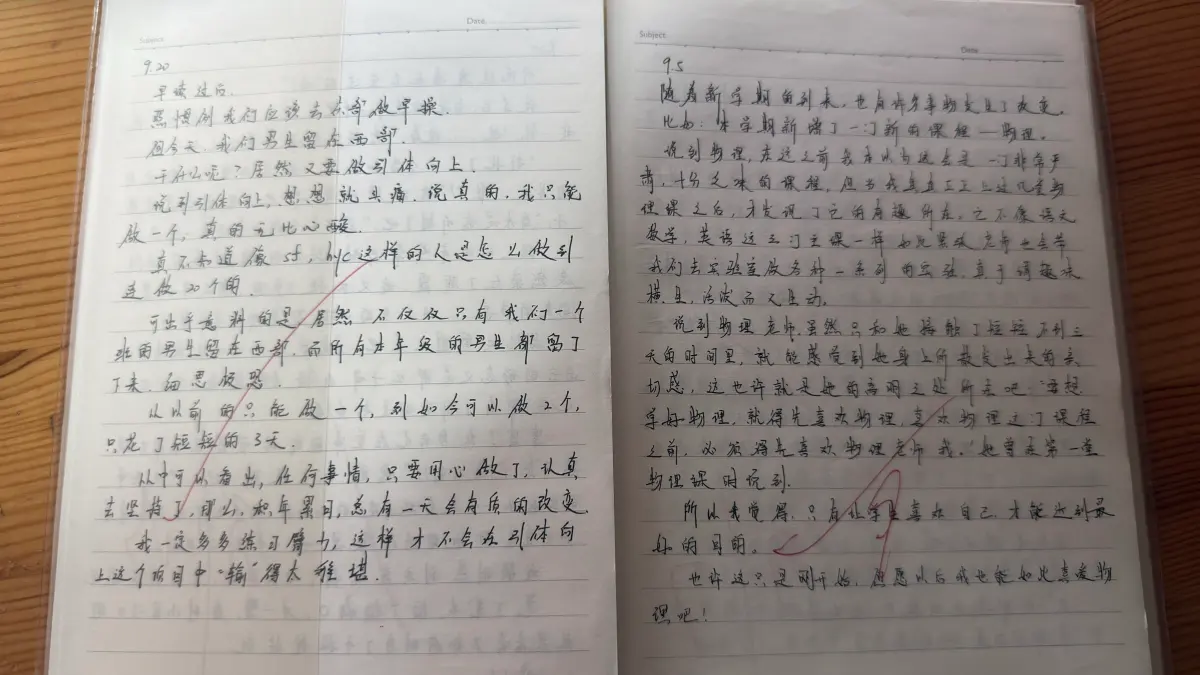 Subject:
Date
9.20
早读过后.
照惯例我们应该去东部做早操.
但今天,我们男生留在西部.
干什么呢?居然又要做引体向上.
说到引体向上,想想就头痛.说真的,我只能
做一个,真的无比心酸.
真不知道像sf,hyc这样的人是怎么做到
连做20个的.
可出乎意料的是居然不仅仅只有我们一个
班的男生留在西部.而所有本年级的男生都留了
下来.细思极恐.
从以前的只能做一个,到如今可以做2个,
只花了短短的3天.
从中可以看出,任何事情,只要用心做了,认真
去坚持了,那么,积年累日,总有一天会有质的改变.
我一定多多练习臂力,这样才不会在引体向
上这个项目中"输"得太难堪.
Subject:
Date
9.5
随着新学期的到来,也有许多事物发生了改变.
比如:本学期新增了一门新的课程——物理.
说到物理,在这之前我本以为这会是一门非常严
肃,十分乏味的课程,但当我真真正正上过几堂物
理课之后,才发现了它的有趣所在,它不像语文
数学,英语这三门主课一样如此紧张,老师也会带
我们去实验室做各种一系列的实验,真于调皮
横生,活泼而又生动。
说到物理老师,虽然只和她接触了短短不到三
天的时间里,就能感受到她身上所散发出来的亲
切感,这也许就是她的高明之处所在吧."要想
学好物理,就得先喜欢物理,喜欢物理这门课程
之前,必须得先喜欢物理老师我."她曾在第一堂
物理课时说到.
所以我觉得,只有让学生喜欢自己,才能达到最
好的目的。
也许这只是刚开始,但愿以后我也能如此喜爱物
理吧!